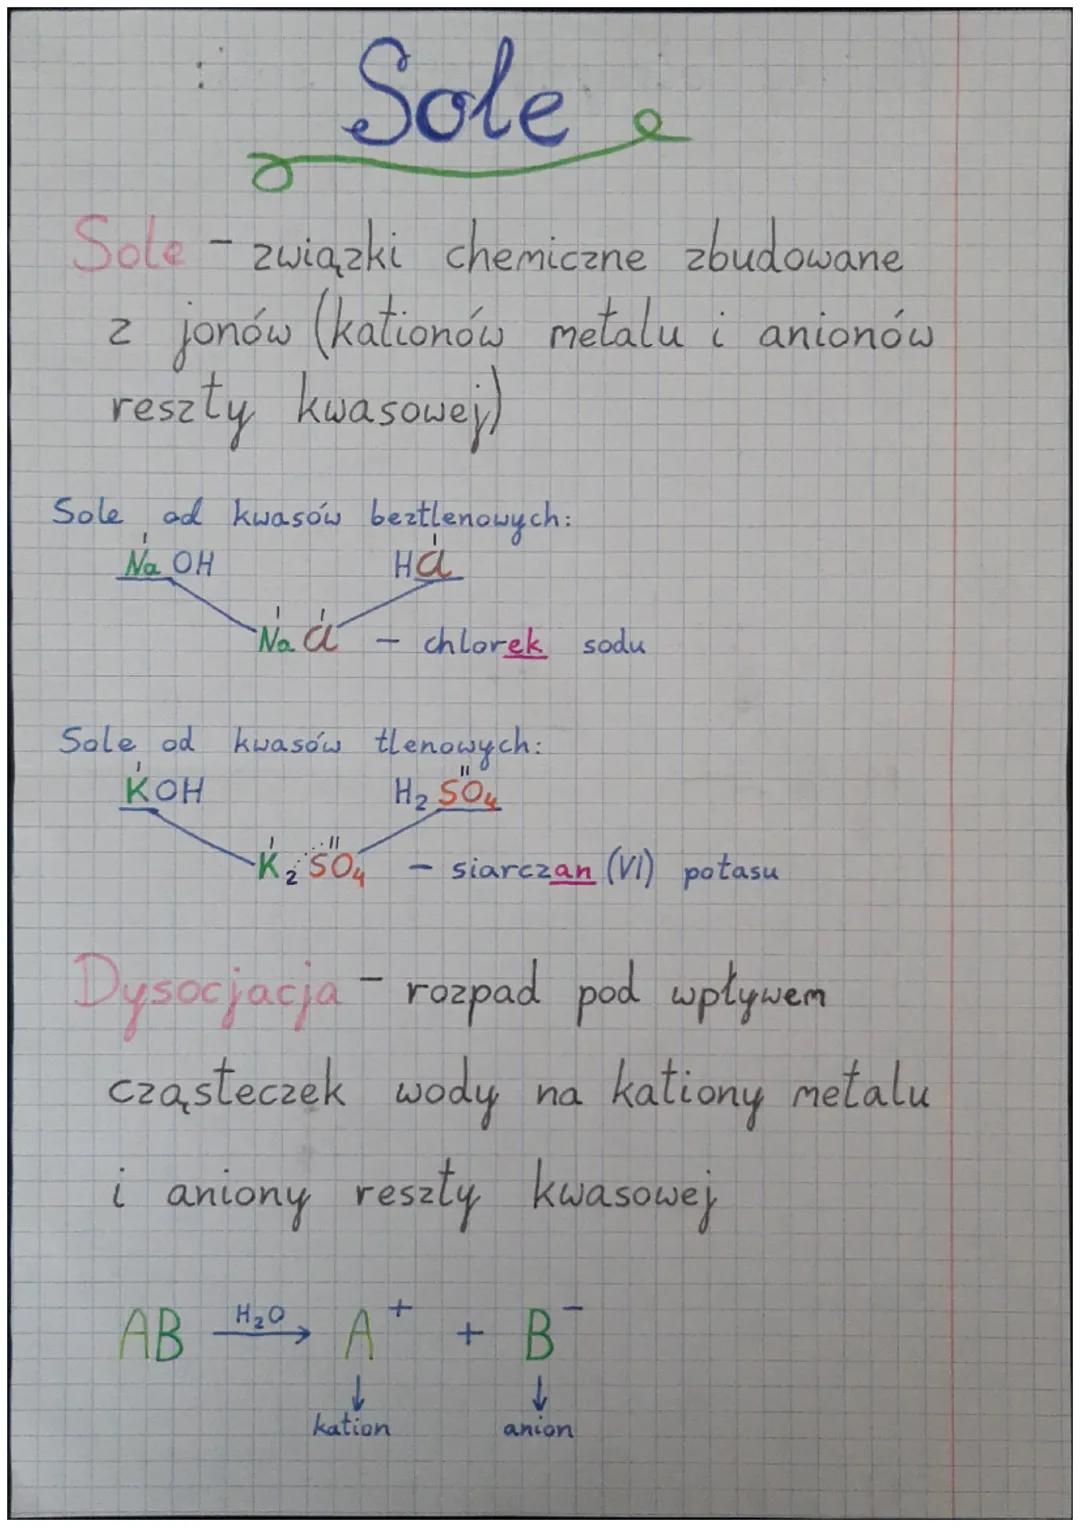 Sole
Sole - związki chemiczne zbudowane
z jonów (kationów metalu i anionów
reszty kwasowej)
Sole od kwasów beztlenowych:
I I
NaOH HCl
I I
NaCl - chlorek sodu
Sole od kwasów tlenowych:
I II
KOH H₂SO₄
I II
K₂SO₄ - siarczan (VI) potasu
Dysocjacja - rozpad pod wpływem
cząsteczek wody na kationy metalu
i aniony reszty kwasowej
AB H₂O→ A⁺ + B⁻
↓ ↓
kation anion